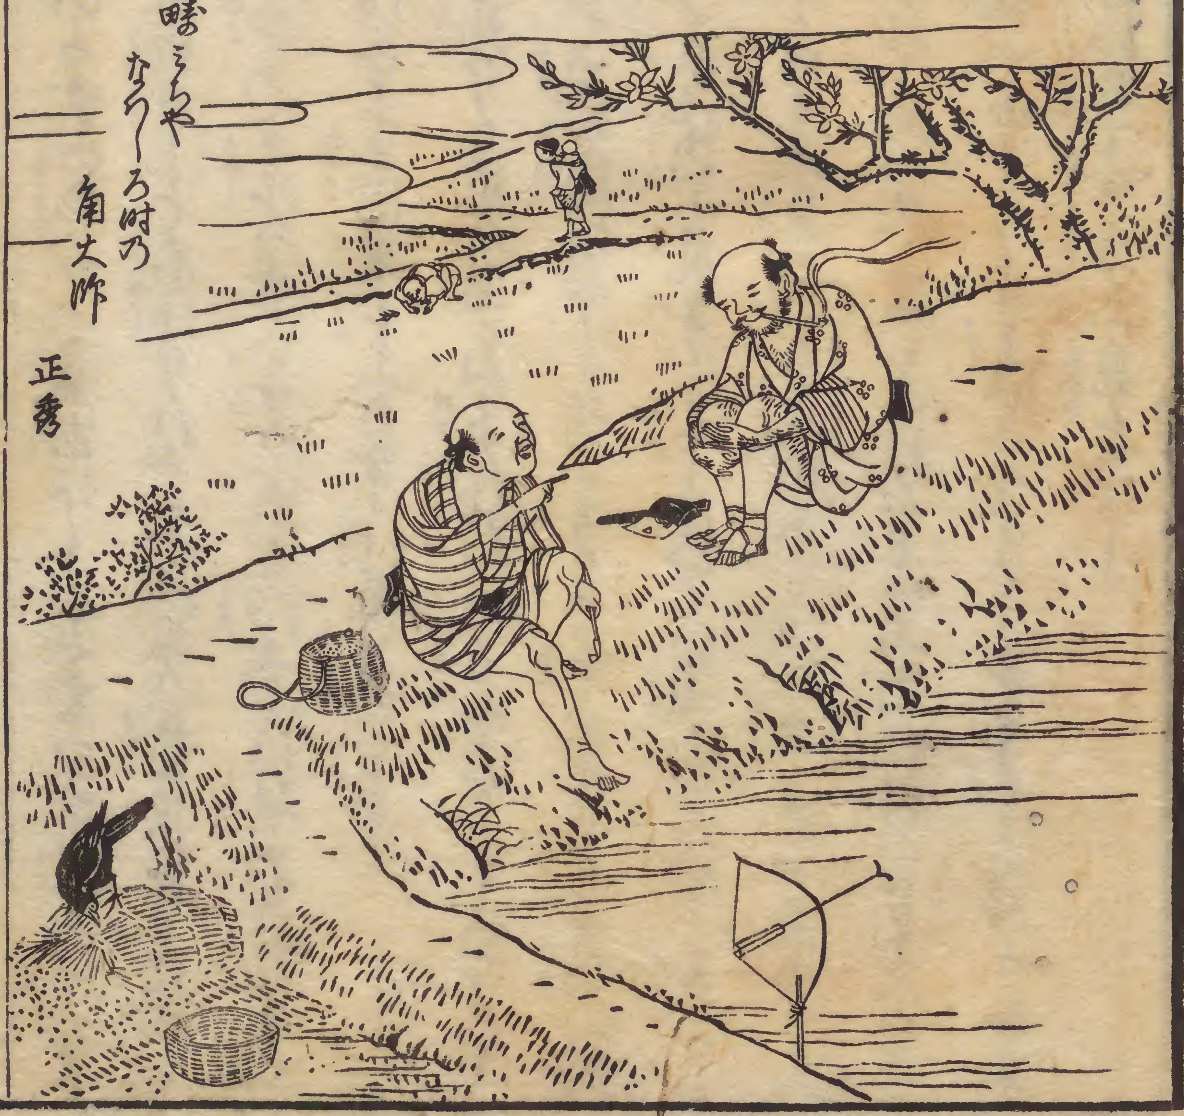 畴ミちや
なわしろ時乃
角大師
正秀